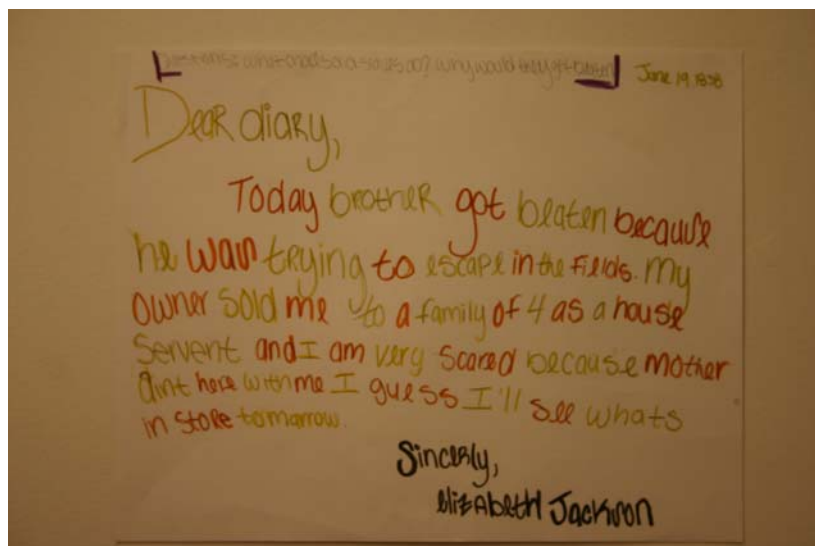 what did would they get beaten June 19, 1838
Dear diary,
Today brother got beaten because
he was trying to escape in the fields. My
owner sold me to a family of 4 as a house
servent and I am very scared because mother
aint here with me I guess I'll see whats
in store tomarrow.
Sincerly,
Elizabeth Jackson